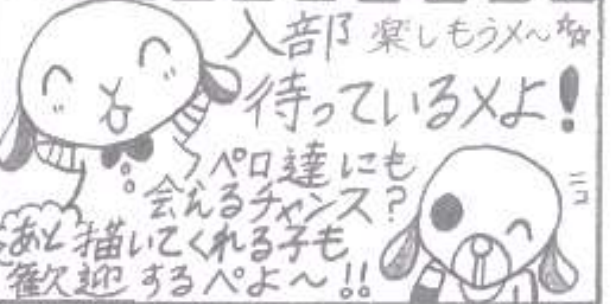 入部 楽しもうメ～☆☆
待っているメよ!
ペロ達にも
会えるチャンス?
あと描いてくれる子も
歓迎するペよ～!!
ニコ